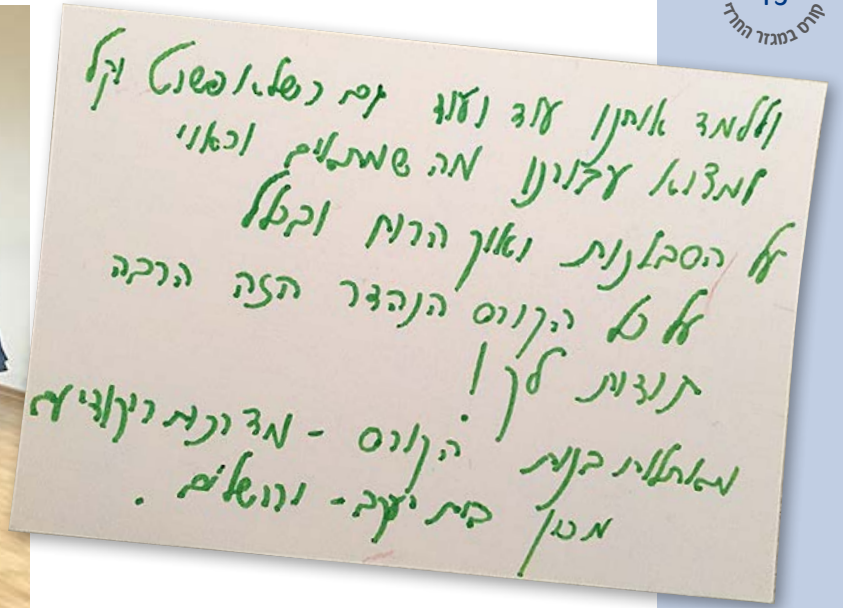 קורס במגזר החרדי
וללמד אותנו עוד ועוד גם פשוט וקל
למצוא עבורנו מה שמתאים וראוי
על הסבלנות ואורך הרוח ובכלל
על כל הקורס הנהדר הזה הרבה
תודות לך!
בנות הקורס - מדריכות ריקודי עם
מכון בית יעקב - ירושלים.